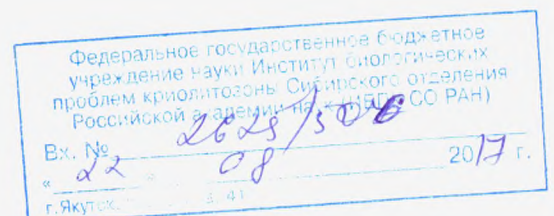 Федеральное государственное бюджетное
учреждение науки Институт биологических
проблем криолитозоны Сибирского отделения
Российской академии наук (ИБПК СО РАН)
Вх. №
« 22 » 08 2017 г.
г. Якутск, 41